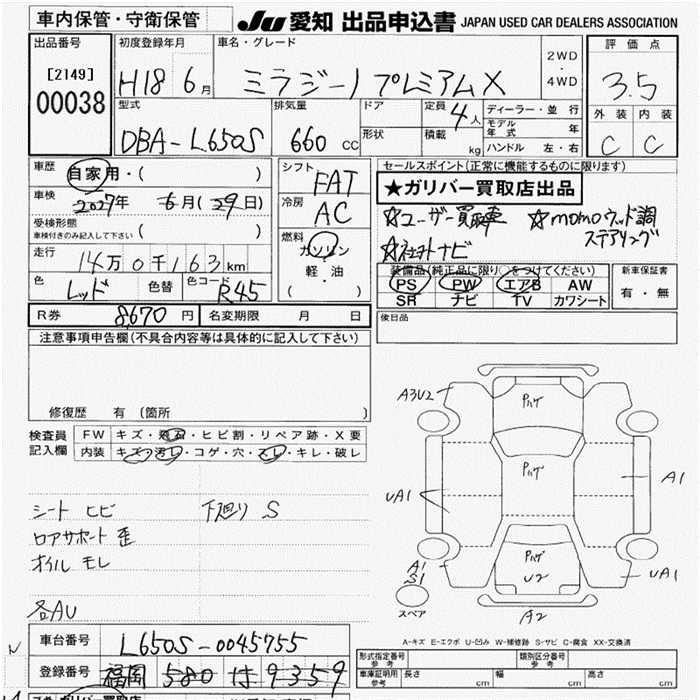 車内保管・守衛保管
JU 愛知 出品申込書 JAPAN USED CAR DEALERS ASSOCIATION
出品番号
[2149]
00038
初度登録年月
H18 6月
車名・グレード
ミラジーノ プレミアムX
2WD
・
4WD
評価点
3.5
外装 内装
C C
型式
DBA-L650S
排気量
660 cc
ドア
形状
定員 4人
積載 kg
ディーラー・並 行
モデル年式 年
ハンドル 左・右
車歴
自家用・( )
車検
2027年 6月(29日)
受検形態
車検付きのみ記入して下さい ( )
走行
14万0千163km
色
レッド
色替
色コード
R45
シフト
FAT
冷房
AC
燃料
ガソリン
・
軽・油
( )
セールスポイント(正常に機能するものに限ります)
★ガリバー買取店出品
☆ユーザー買取車 ☆momoウッド調
ステアリング
☆社外ナビ
装備品(純正品に限り○をつけてください)
PS PW エアB AW
SR ナビ TV カワシート
新車保証書
有・無
R券 8670円
名変期限 月 日
後日品
注意事項申告欄(不具合内容等は具体的に記入して下さい)
修復歴 有(箇所 )
検査員
記入欄
FW キズ・飛石・ヒビ割・リペア跡・X要
内装 キズ・汚レ・コゲ・穴・スレ・キレ・破レ
シート ヒビ
下廻り S
ロアサポート 歪
オイル モレ
各AU
A3U2
ハゲ
ハゲ
UA1
A1
ハゲ
U2
A1
S1
UA1
スペア
A2
A-キズ E-エクボ U-凹み W-補修跡 S-サビ C-腐食 XX-交換済
車台番号 L650S-0045755
登録番号 福岡 580 は 9359
形式指定番号
参考
類別区分番号
参考
車庫証明用
参考
長さ cm 幅 cm 高さ cm
ガリバー買取店